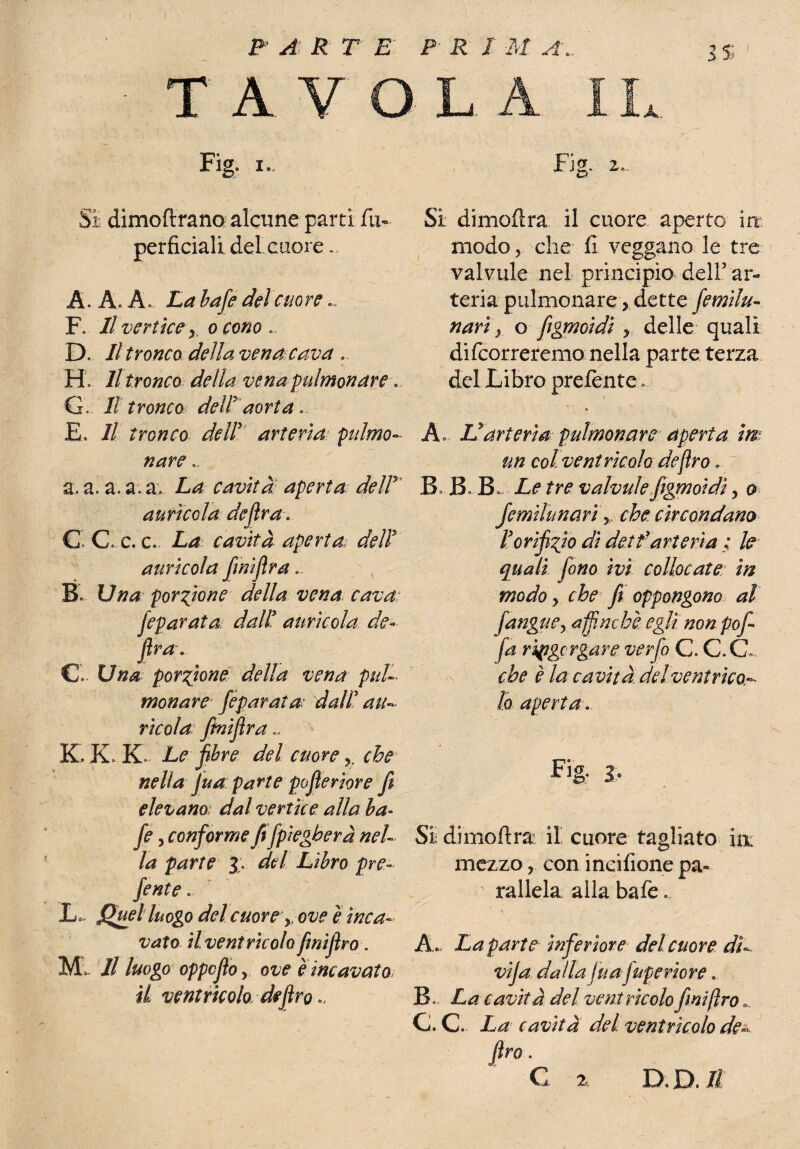 PARTE PRIMA. 35
TAVOLA II.
Fig. 1.
Si dimoſtrano alcune parti ſu-
perficiali del cuore.
A. A. A. La baſe del cuore.
F. Il vertice, o cono.
D. Il tronco della vena cava.
H. Il tronco della vena pulmonare.
G. Il tronco dell' aorta.
E. Il tronco dell' arteria pulmo-
nare.
a. a. a. a. a. La cavità aperta dell'
auricola deſtra.
C. C. c. c. La cavità aperta dell'
auricola ſiniſtra.
B. Una porzione della vena cava
ſeparata dall' auricola de-
ſtra.
C. Una porzione della vena pul-
monare ſeparata dall' au-
ricola ſiniſtra.
K. K. K. Le fibre del cuore, che
nella ſua parte poſteriore ſi
elevano dal vertice alla ba-
ſe, conforme ſi ſpiegherà nel-
la parte 3. del Libro pre-
ſente.
L. Quel luogo del cuore, ove è inca-
vato il ventricolo ſiniſtro.
M. Il luogo oppoſto, ove è incavato
il ventricolo deſtro.
Fig. 2.
Si dimoſtra il cuore aperto in
modo, che ſi veggano le tre
valvule nel principio dell' ar-
teria pulmonare, dette ſemilu-
nari, o ſigmoidi, delle quali
diſcorreremo nella parte terza
del Libro preſente.
A. L'arteria pulmonare aperta in
un col ventricolo deſtro.
B. B. B. Le tre valvule ſigmoidi, o
ſemilunari, che circondano
l'orifizio di dett'arteria; le
quali ſono ivi collocate in
modo, che ſi oppongono al
ſangue, affinchè egli non poſ-
ſa riſgorgare verſo C. C. C.
che è la cavità del ventrico-
lo aperta.
Fig. 3.
Si dimoſtra il cuore tagliato in
mezzo, con inciſione pa-
rallela alla baſe.
A. La parte inferiore del cuore di-
viſa dalla ſua ſuperiore.
B. La cavità del ventricolo ſiniſtro.
C. C. La cavità del ventricolo de-
ſtro.
C 2 D. D. Il